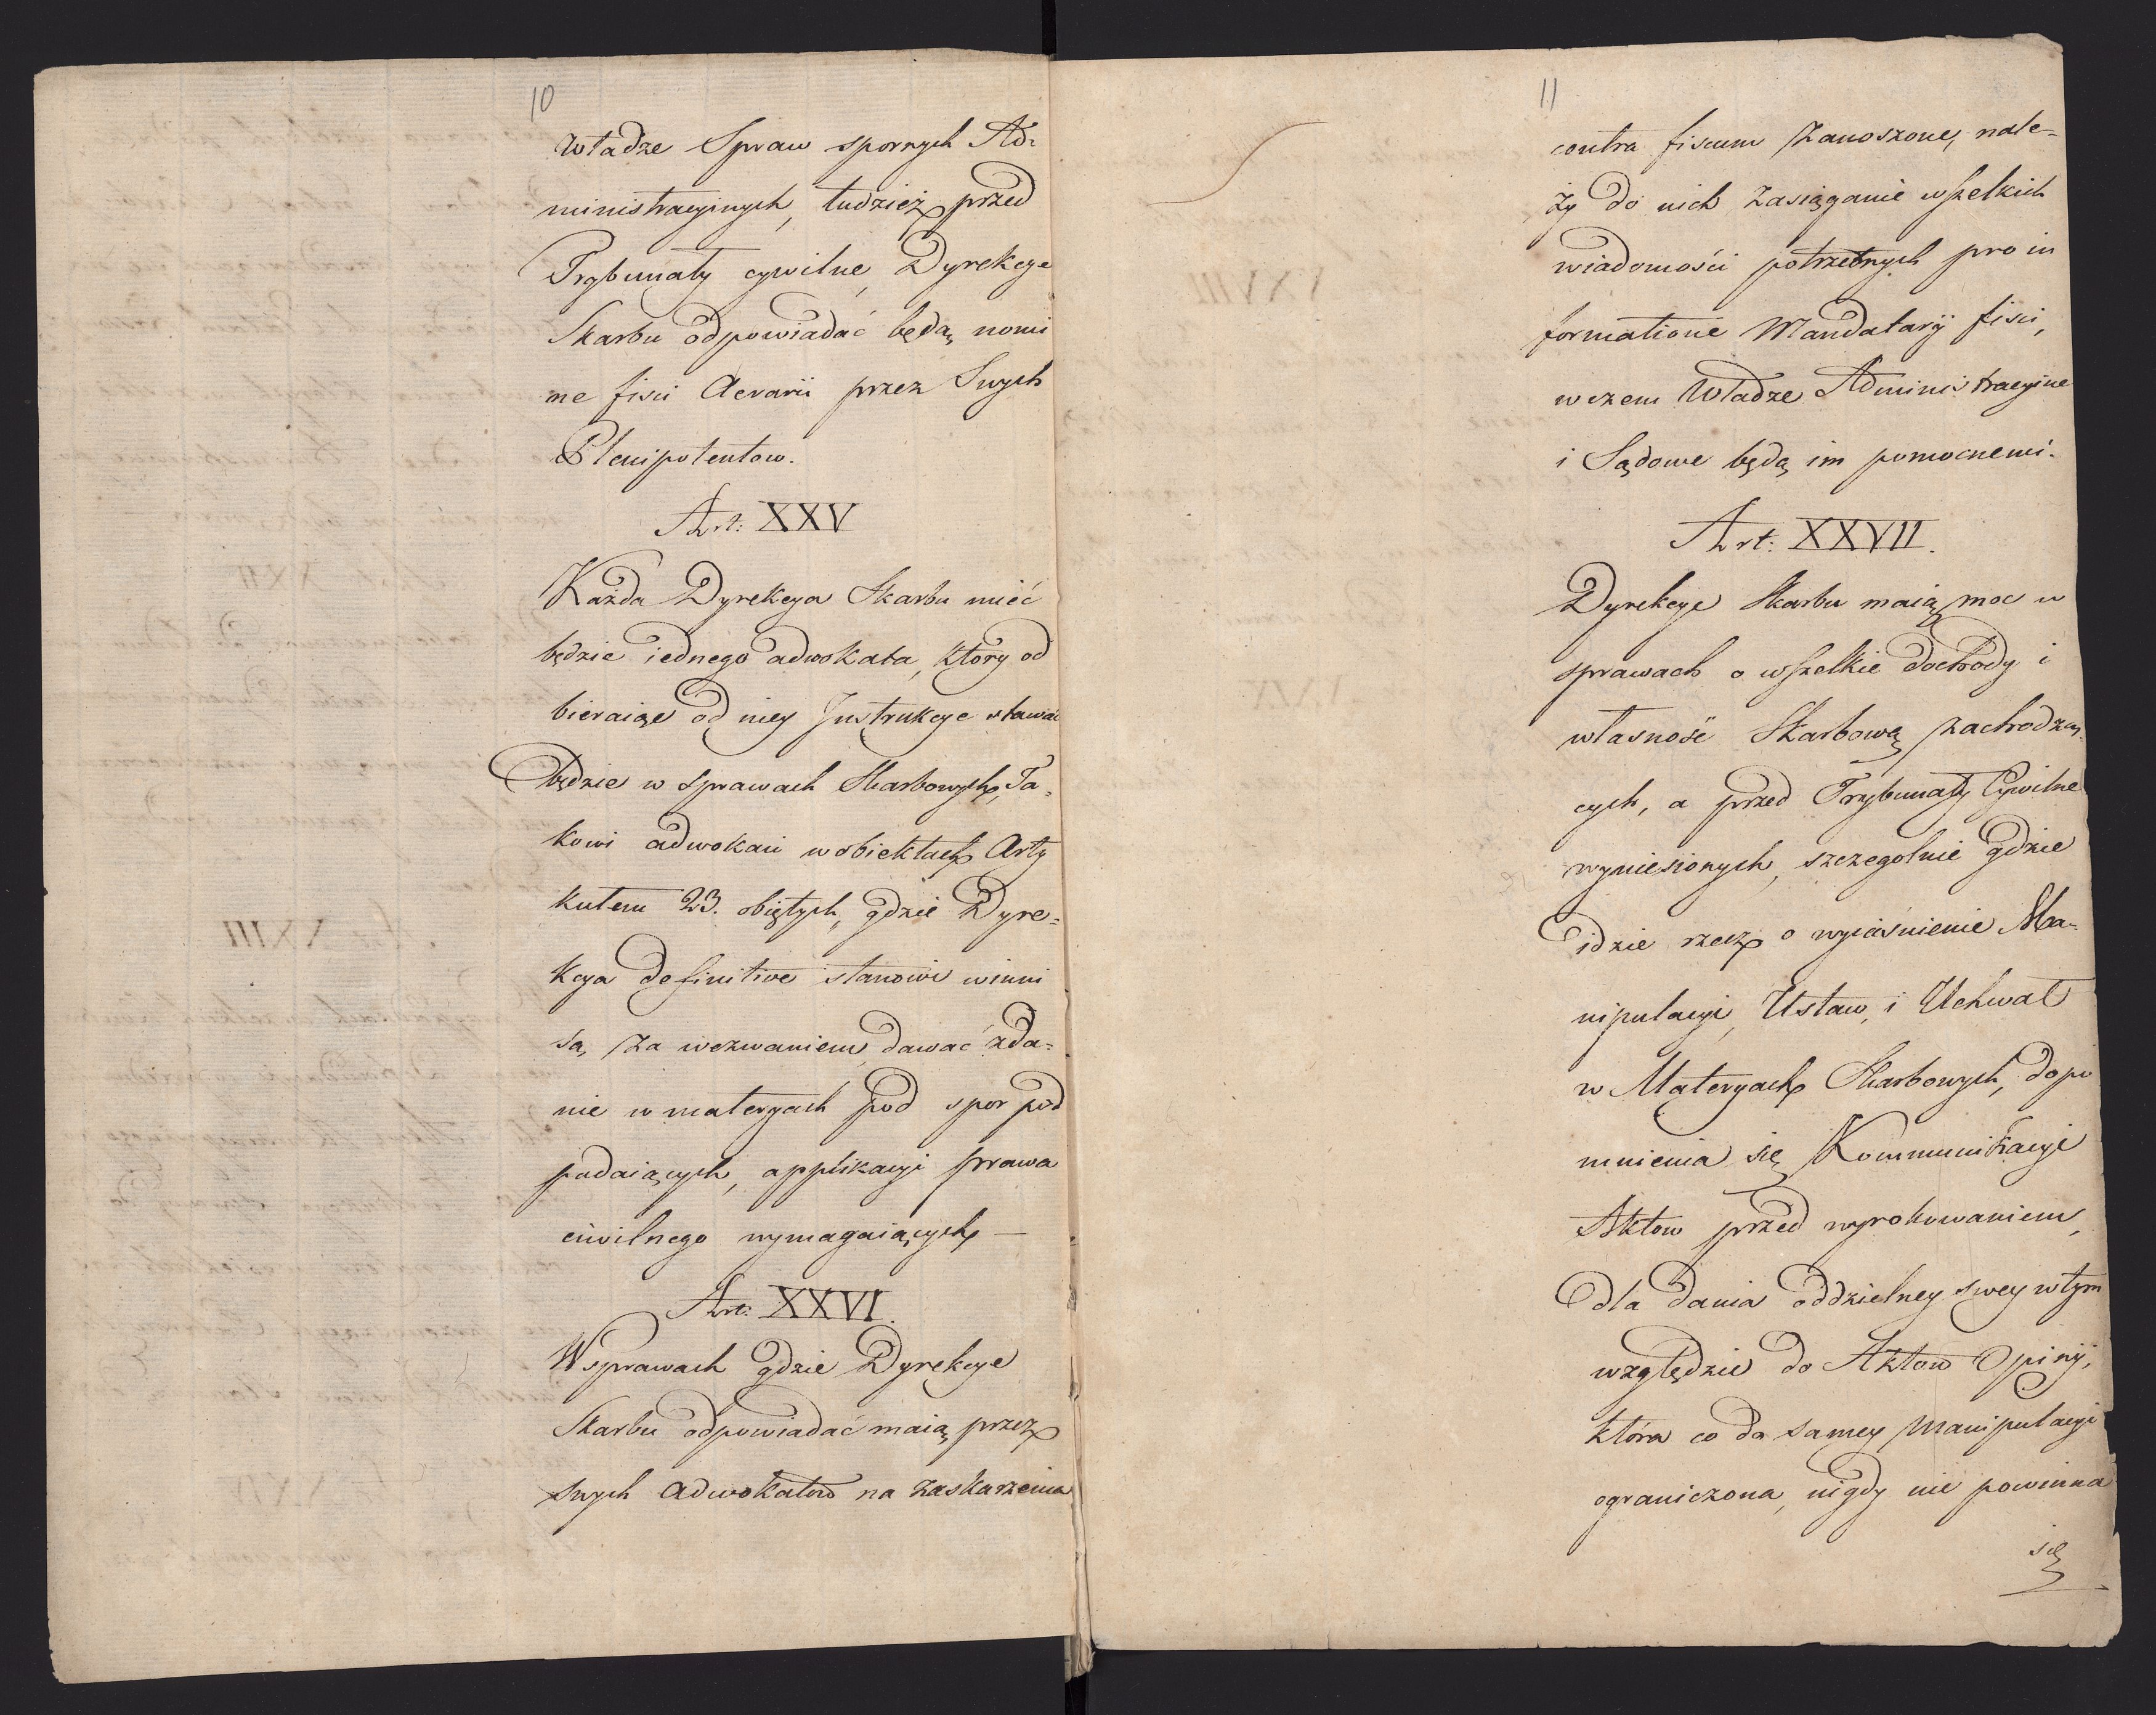 10
Władze Spraw spornych Ad-
ministracyinych, tudzież przed
Trybunały cywilne, Dyrekcye
Skarbu odpowiadać będą, nomi
ne fisci Aerarii przez Swych
Plenipotentow.
Art: XXV
Każda Dyrekcya Skarbu mieć
będzie iednego adwokata, ktory od
bieraiąc od niey Instrukcye stawać
będzie w sprawach Skarbowych, Ta-
kowi adwokaci w obiektach Arty
kułem 23. obiętych, gdzie Dyre-
kcya definitive stanowi winni
są, za wezwaniem dawać zda-
nie w materyach pod spor pod
padaiących, applikacyi prawa
ciwilnego wymagaiących —
Art: XXVI.
W sprawach gdzie Dyrekcye
Skarbu odpowiadać maią przez
swych adwokatow na zaskarzenia
11
contra fiscum zanoszone, nale-
ży do nich zasiąganie wszelkich
wiadomości potrzebnych pro in
formatione Mandatarij fisci,
w czem Władze Administracyine
i Sądowe będą im pomocnemi.
Art: XXVII.
Dyrekcye Skarbu maią moc w
sprawach o wszelkie dochody i
własność Skarbową zachodzą-
cych, a przed Trybunały Cywilne
wyniesionych, szczegolnie gdzie
idzie rzecz o wyiaśnienie Ma-
nipulacyi, Ustaw, i Uchwał
w Materyach Skarbowych, dopo
mnienia się Kommunikacyi
Aktow przed wyrokowaniem,
dla dania oddzielney swey w tym
względzie do Aktow Opinij,
która co do samey Manipulacyi
ograniczona, nigdy nie powinna
się